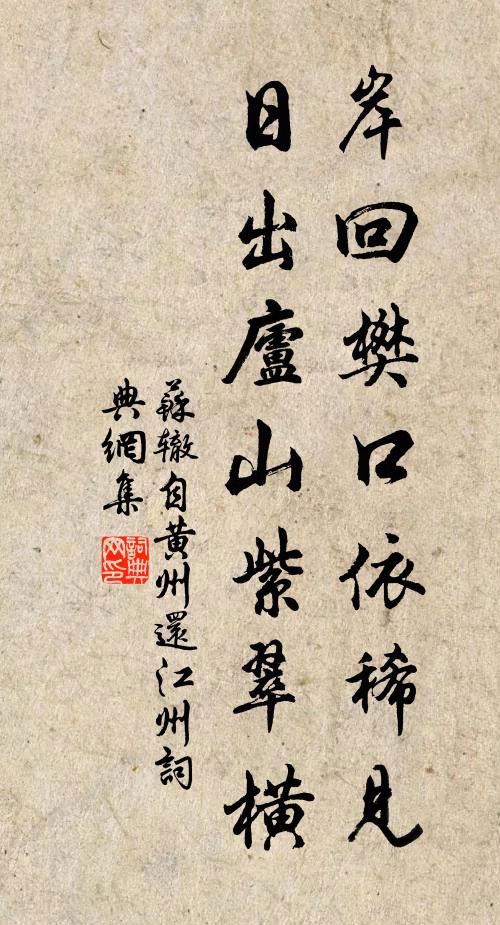 岸回樊口依稀見
日出廬山紫翠橫
蘇轍自黃州還江州詞
典網集
詞典
网印